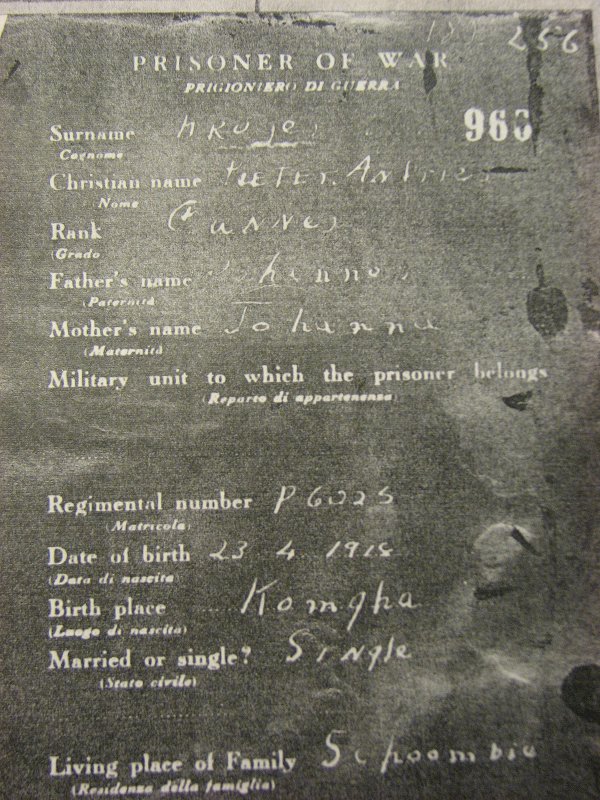 256
PRISONER OF WAR
PRIGIONIERO DI GUERRA
Surname 966
Cognome
Christian name Pieter. Andries
Nome
Rank Gunner
(Grado
Father's name
(Paternità
Mother's name Johanna
(Maternità
Military unit to which the prisoner belongs
(Reparto di appartenenza)
Regimental number P6025
(Matricola)
Date of birth 23 4 1918
(Data di nascita
Birth place Komgha
(Luogo di nascita)
Married or single? Single
(Stato civile)
Living place of Family
(Residenza della famiglia)